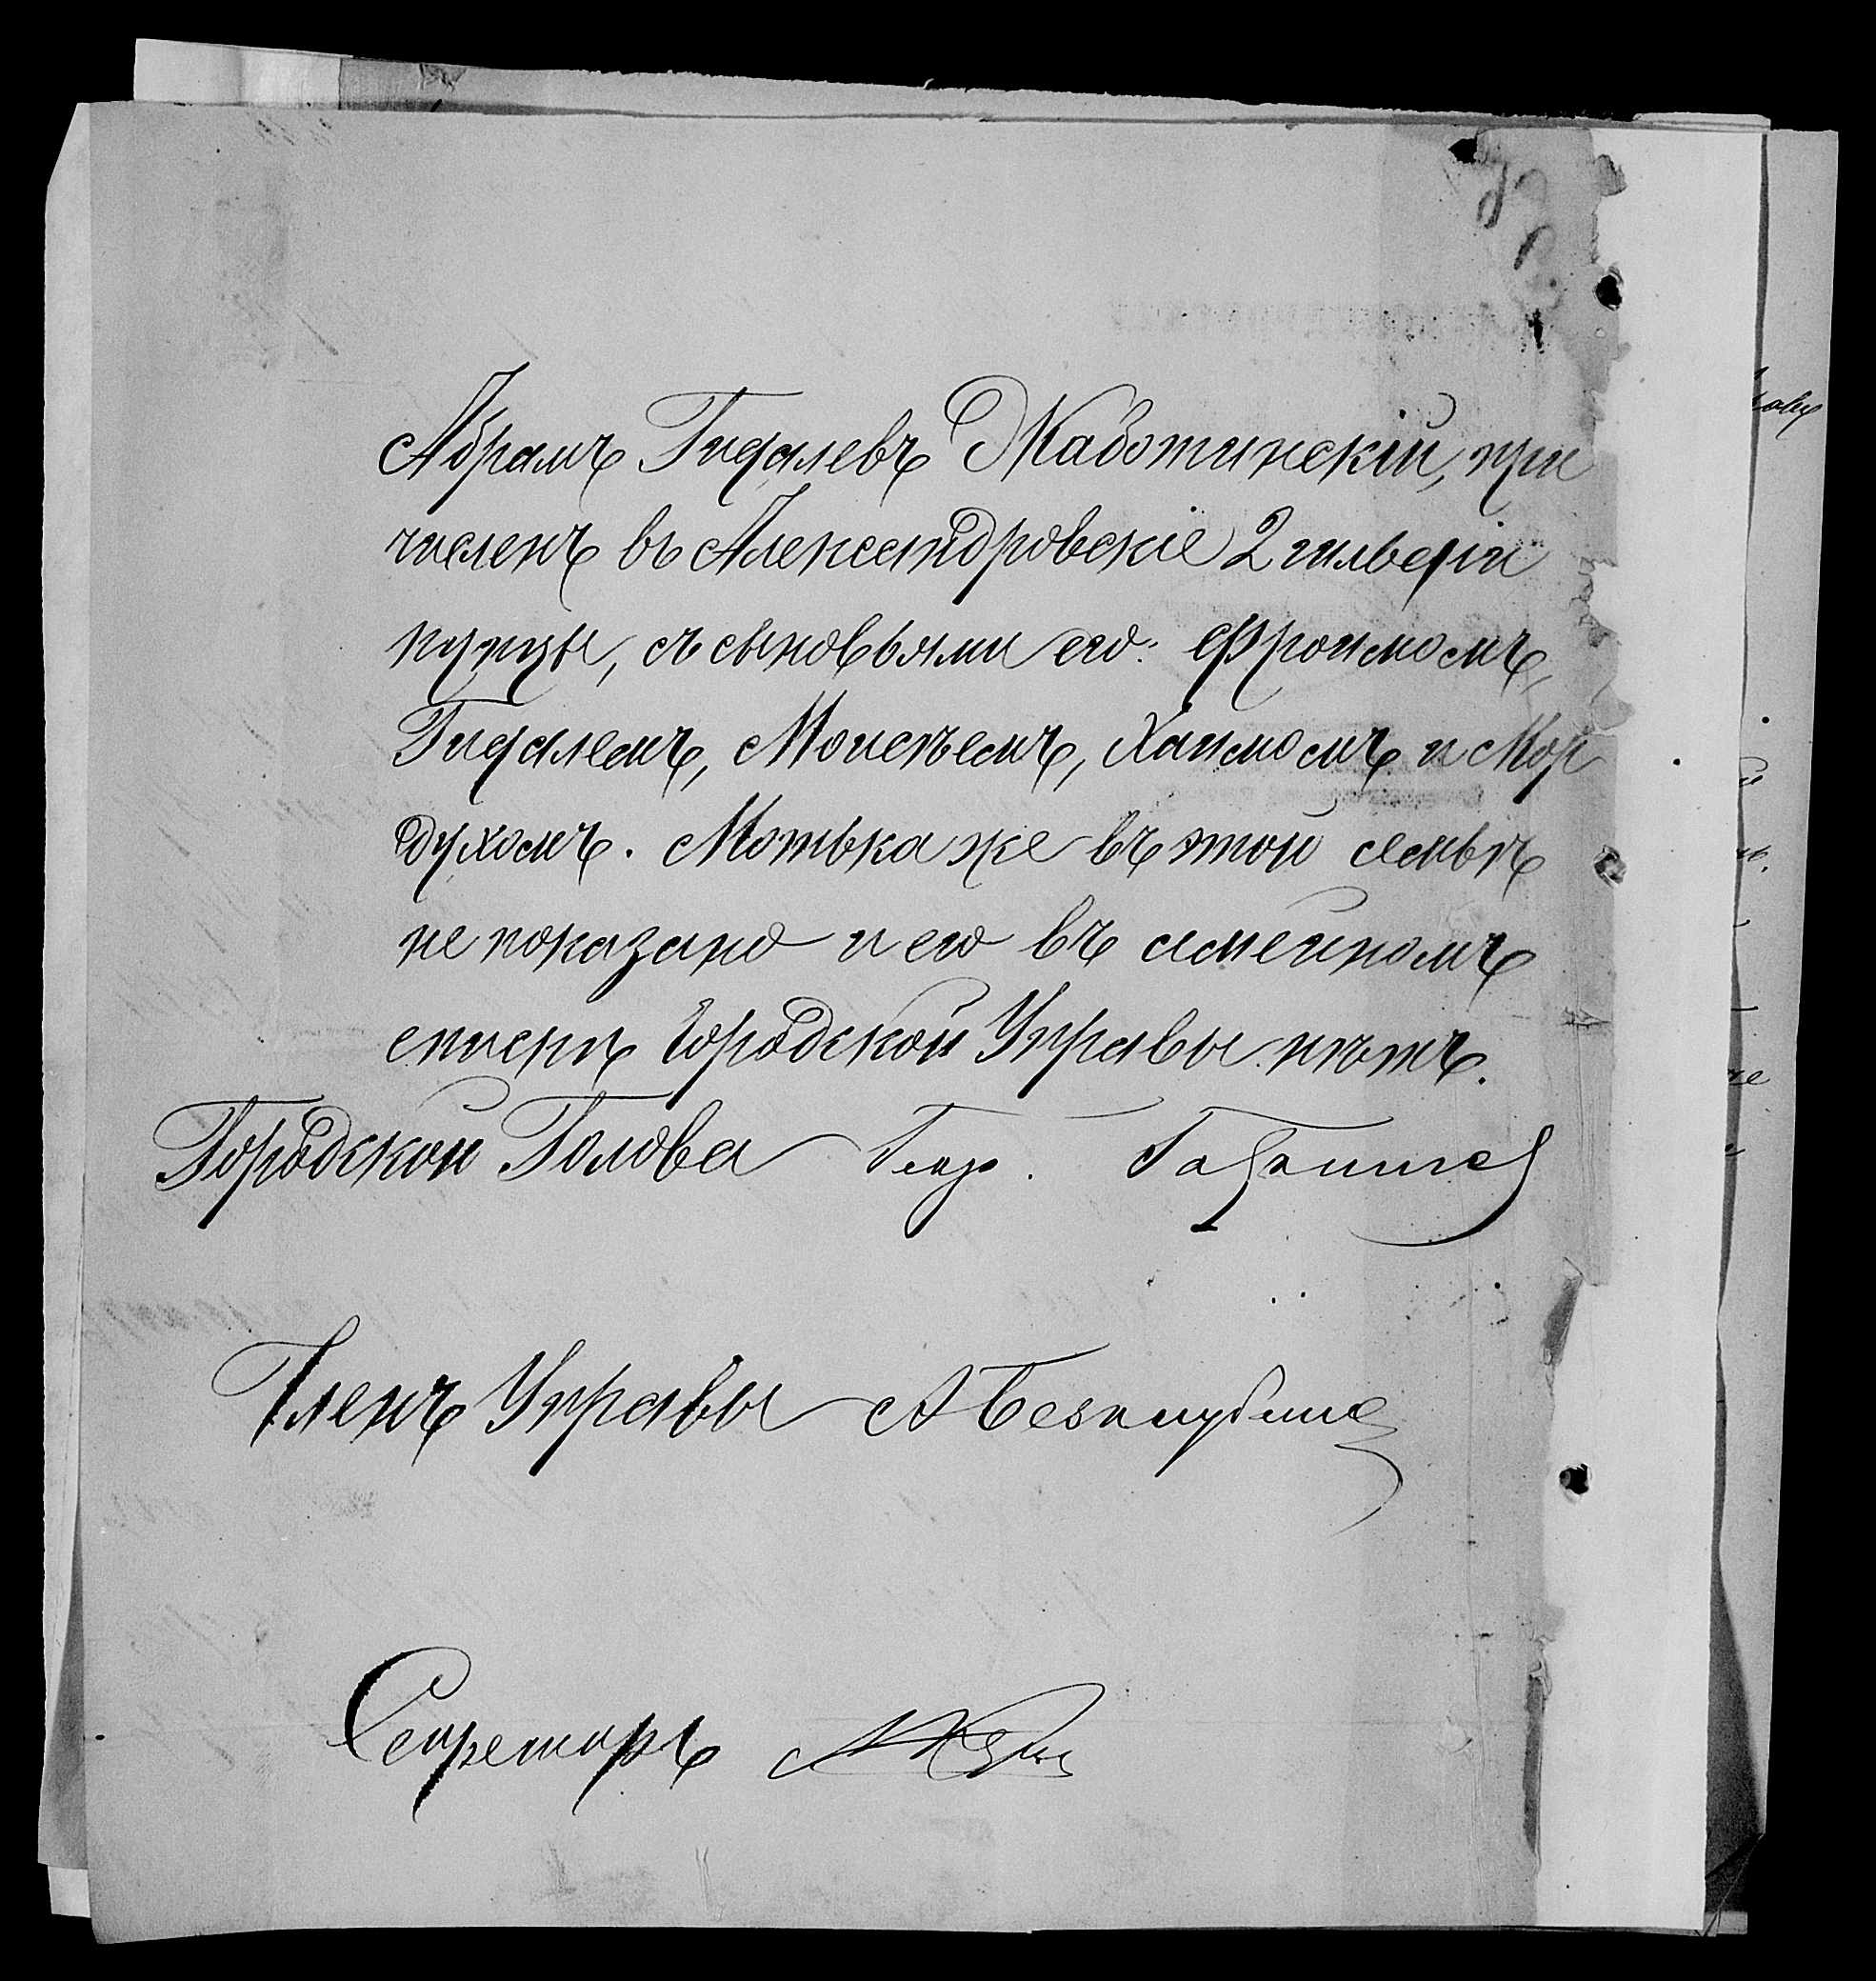 Абрамъ Гидалевъ Жаботинскій, при
численъ въ Александровскіе 2 гильдіи
купцы, съ сыновьями его: Фроимомъ,
Гидалемъ, Моисѣемъ, Хаимомъ и Мор
духомъ. Мотька же въ этой семьѣ
не показано и его въ семейномъ
спискѣ Городской Управы нѣтъ.
Городской Голова
Членъ Управы А
Секретарь